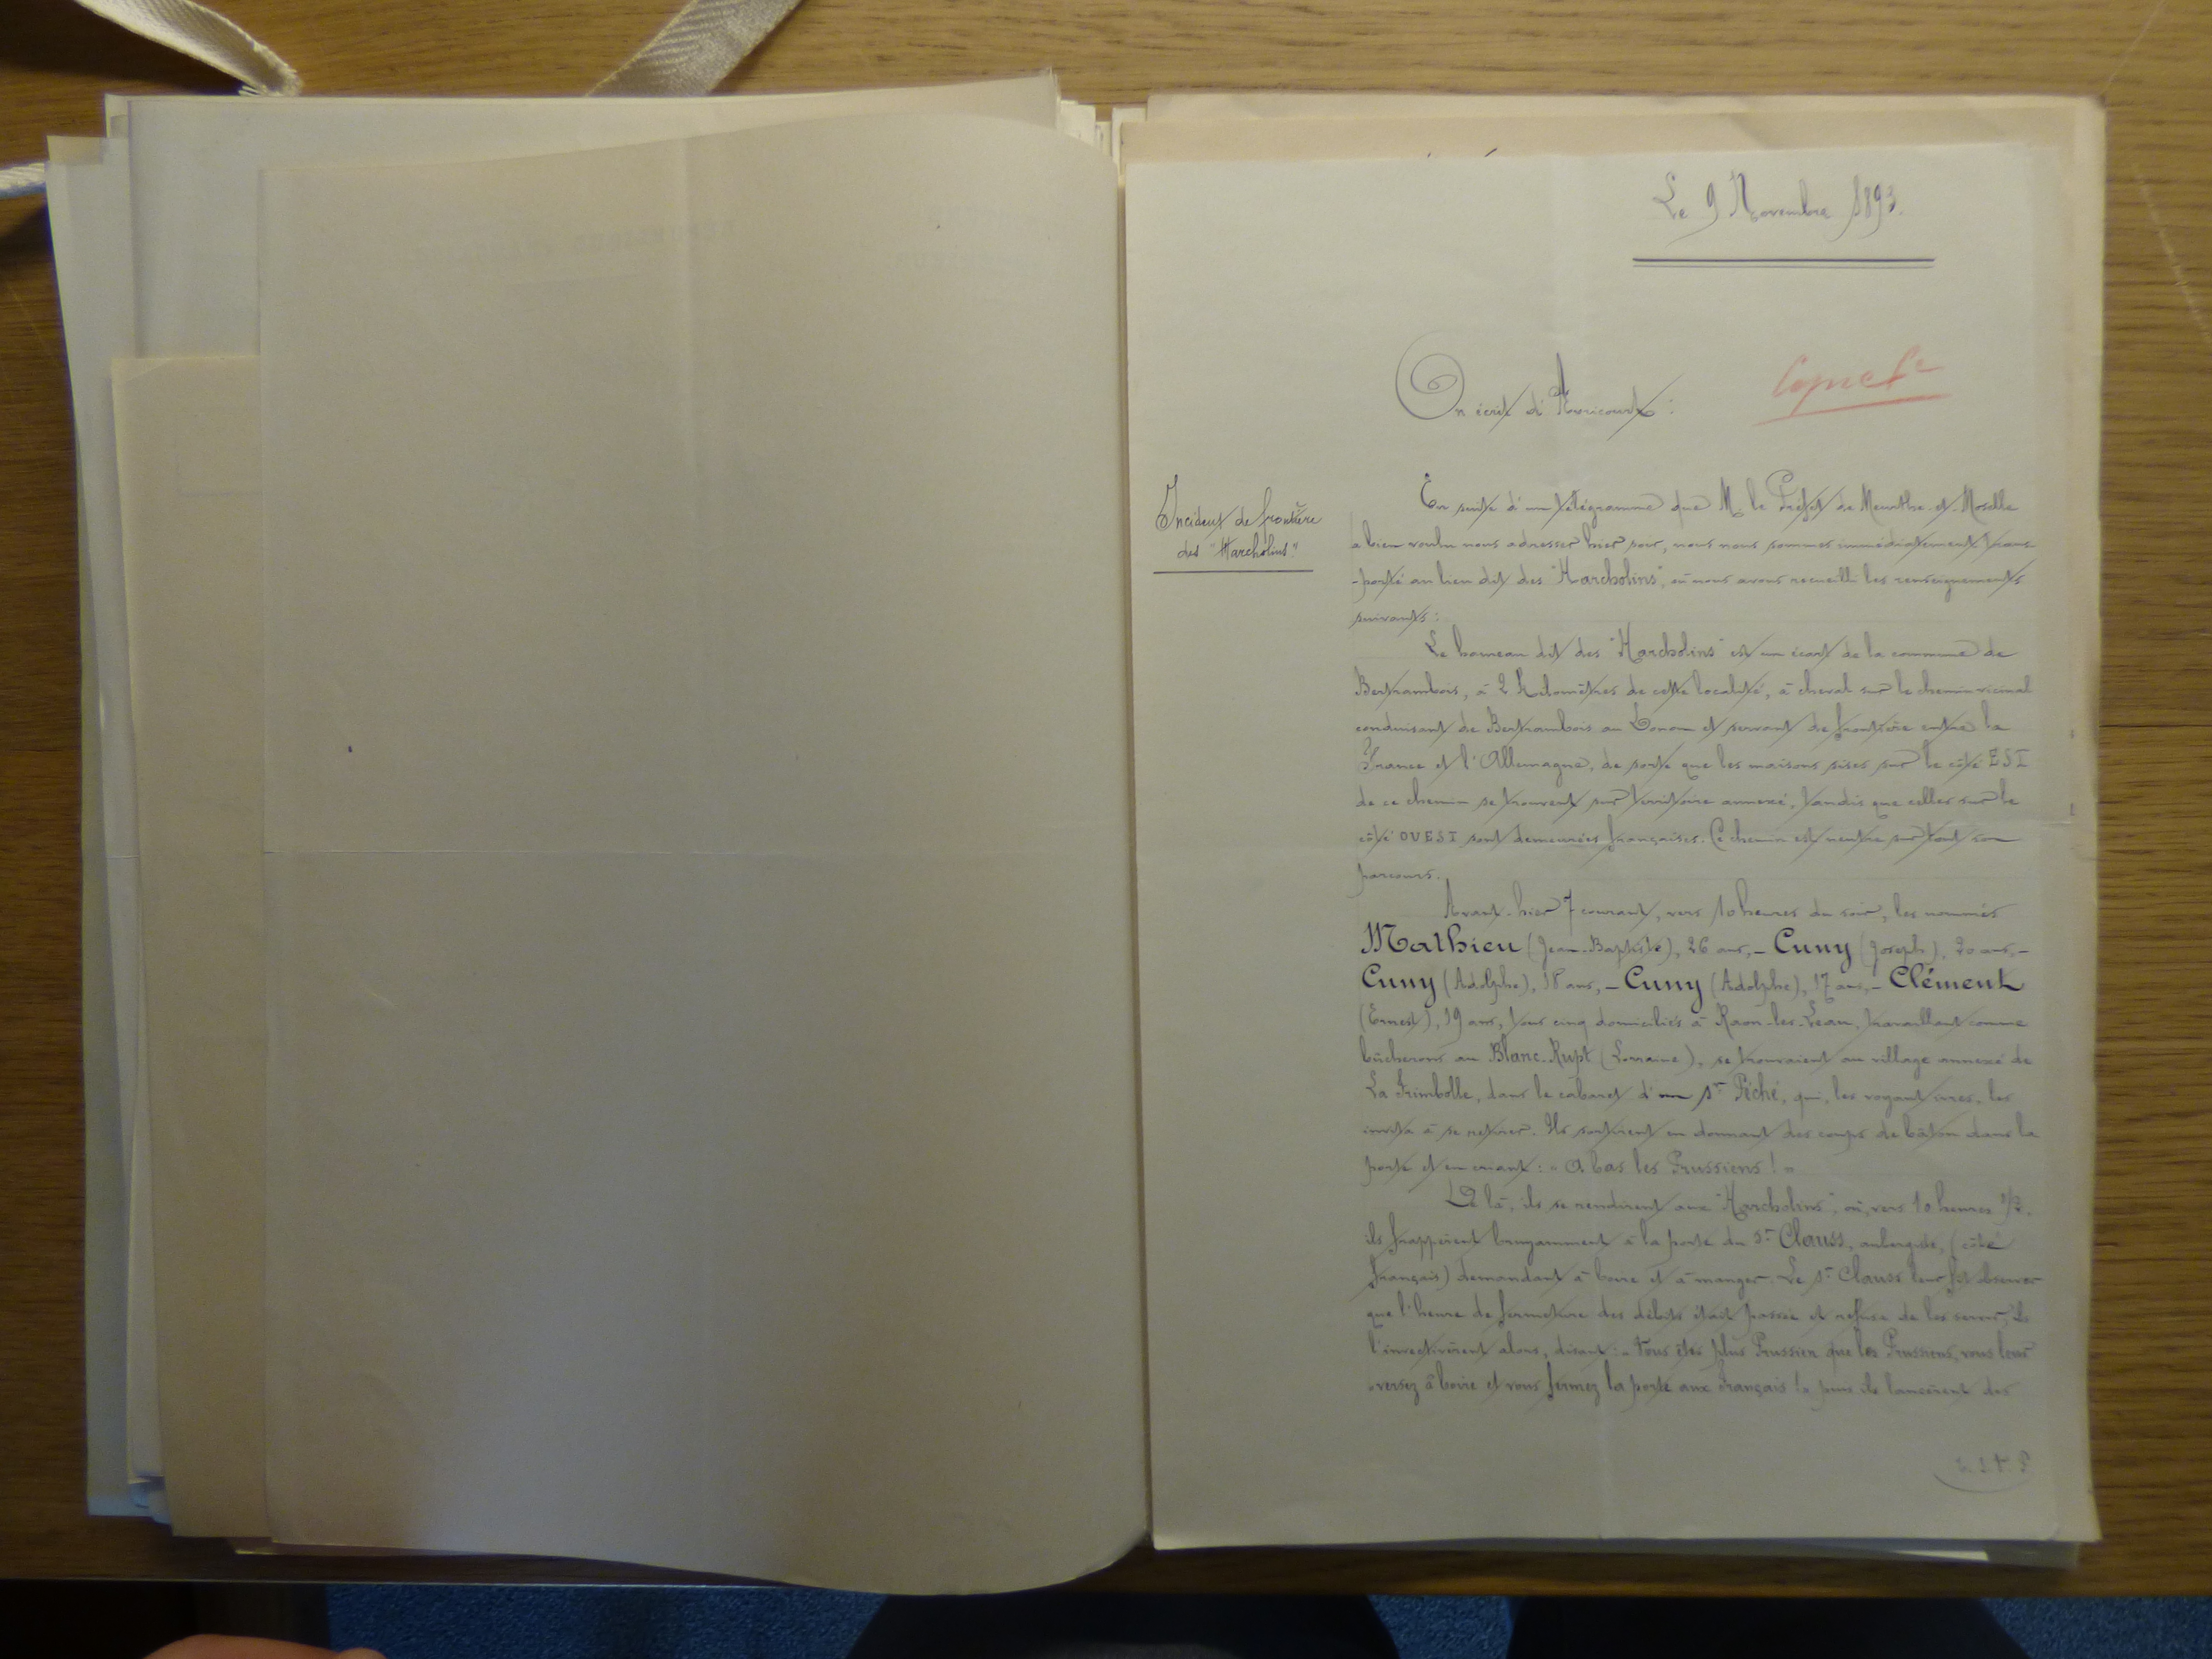 Le 9 Novembre 1893.
On écrit d'Avricourt :
Incident de frontière
des "Harcholins"
En suite d'un télégramme que M. le Préfet de Meurthe-et-Moselle
a bien voulu nous adresser hier soir, nous nous sommes immédiatement trans-
-porté au lieu dit des "Harcholins", où nous avons recueilli les renseignements
suivants :
Le hameau dit des "Harcholins" est un écart de la commune de
Bertrambois, à 2 Kilomètres de cette localité, à cheval sur le chemin vicinal
conduisant de Bertrambois au Donon et servant de frontière entre la
France et l'Allemagne, de sorte que les maisons sises sur le côté EST
de ce chemin se trouvent sur territoire annexé, tandis que celles sur le
côté OUEST sont demeurées françaises. Ce chemin est neutre sur tout son
parcours.
Avant-hier 7 courant, vers 10 heures du soir, les nommés
Mathieu (Jean-Baptiste), 26 ans, - Cuny (Joseph), 20 ans, -
Cuny (Adolphe), 18 ans, - Cuny (Adolphe), 17 ans, - Clément
(Ernest), 19 ans, tous cinq domiciliés à Raon-les-Leau, travaillant comme
bûcherons au Blanc-Rupt (Lorraine), se trouvaient au village annexé de
La Frimbolle, dans le cabaret d'un sr Péché, qui, les voyant ivres, les
invita à se retirer. Ils sortirent en donnant des coups de bâton dans la
porte et en criant : « A bas les Prussiens ! »
De là, ils se rendirent aux "Harcholins", où, vers 10 heures 1/2,
ils frappèrent bruyamment à la porte du sr Clauss, aubergiste, (côté
français) demandant à boire et à manger. Le sr Clauss leur fit observer
que l'heure de fermeture des débits était passée et refusa de les servir; ils
l'invectivèrent alors, disant : « Vous êtes plus Prussien que les Prussiens, vous leur
versez à boire et vous fermez la porte aux Français ! » puis ils lancèrent des